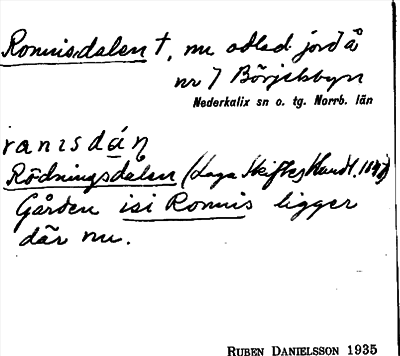 Romisdalen †, nu odlad jord å
nr 7 Börjelsbyn
Nederkalix sn o. tg. Norrb. län
ranısdáņ
Rödningsdalen (Laga Skifteshandl.
Gården isi Romis ligger
där nu.
RUBEN DANIELSSON 1935